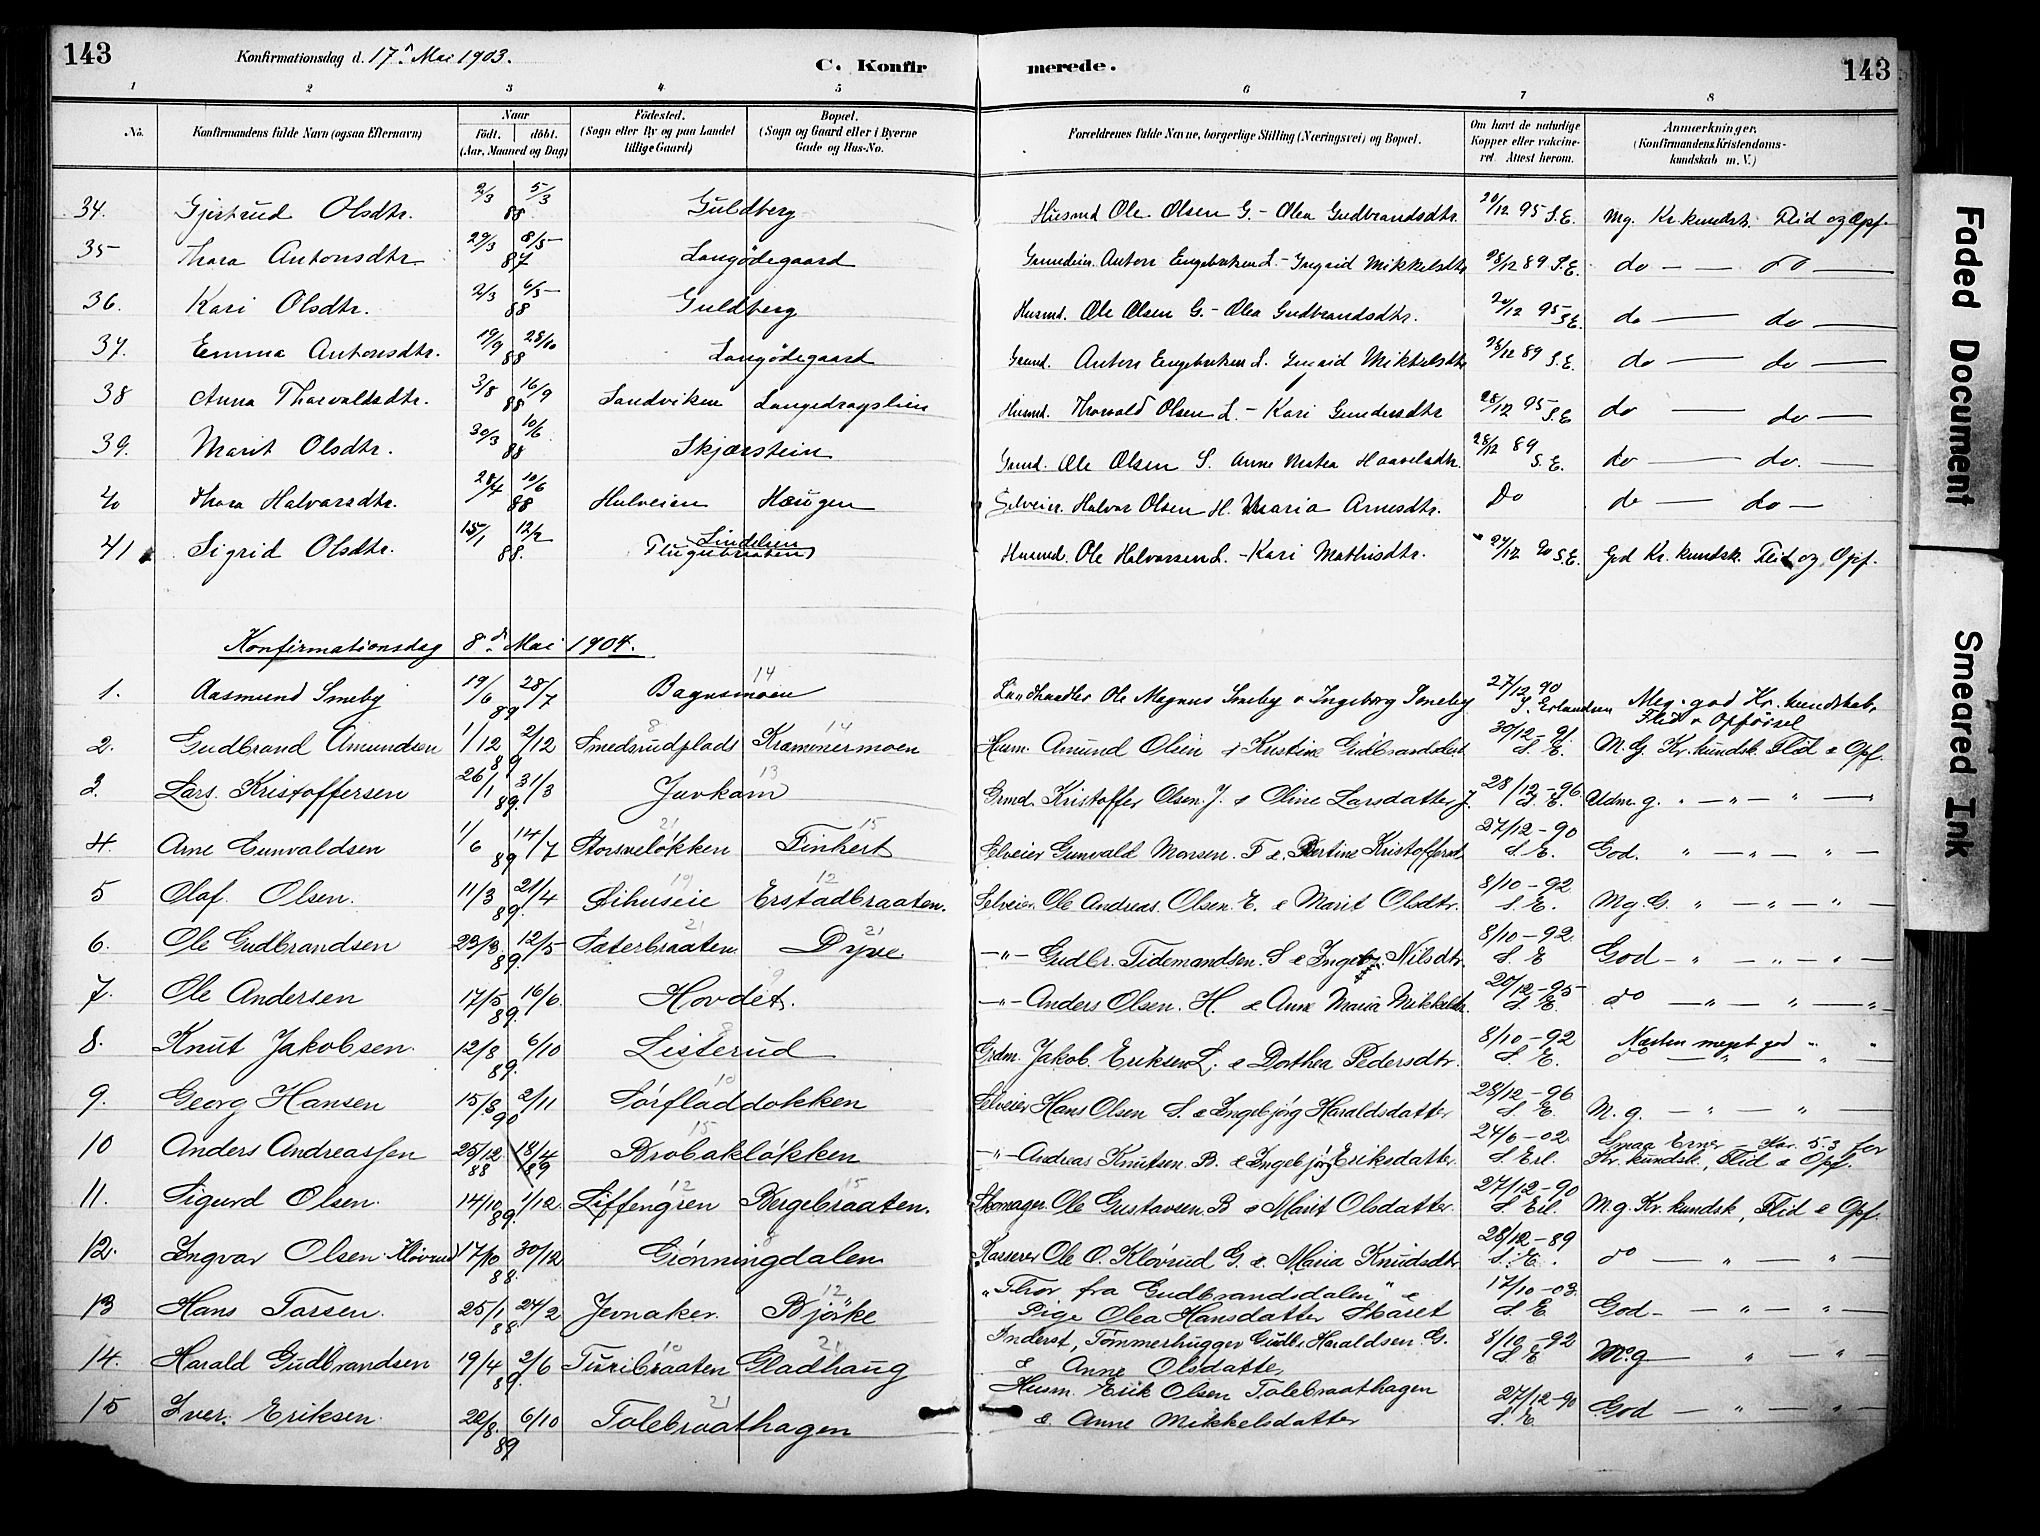 143
Konfirmationsdag d. 17ᵈ Mai 1903.
C. Konfirmerede.
143
1 2 3 4 5 6 7 8
No. Konfirmandens fulde Navn (ogsaa Efternavn) Naar födt. döbt. (Aar, Maaned og Dag) Födested. (Sogn eller By og paa Landet tillige Gaard) Bopæl. (Sogn og Gaard eller i Byerne Gade og Hus-No. Forældrenes fulde Navne, borgerlige Stilling (Næringsvei) og Bopæl. Om havt de naturlige Kopper eller vakcineret. Attest herom. Anmærkninger. (Konfirmandens Kristendomskundskab m. V.)
34. Gjertrud Olsdtr. 2/3 5/3 88 Guldberg Husmd Ole Olsen G. - Olea Gudbrandsdtr. 20/12 95 S.E. Mg. Kr.kundsk. Flid og Opf.
35 Thora Antonsdtr. 29/3 8/5 87 Langødegaard Anton Engebretsen L. - Ingrid Mikkelsdtr 28/12 89 S.E. do — do —
36. Kari Olsdtr. 2/3 6/5 88 Guldberg Husmd. Ole Olsen G. - Olea Gudbrandsdtr. 20/12 95 S.E. do — do —
37. Emma Antonsdtr. 19/9 28/10 88 Langødegaard Anton Engebretsen L. Ingrid Mikkelsdtr 28/12 89 S.E. do — do —
38 Anna Thorvaldsdtr. 3/8 16/9 88 Sandviken Langedragslien Husmd. Thorvald Olsen L. - Kari Gundersdtr 28/12 95 S.E do — do —
39. Marit Olsdtr. 30/3 10/6 88 Skjærstein Grmd. Ole Olsen S. Anne Matea Haavelsdtr. 28/12 89 S.E. do — do. —
40 Thora Halvarsdtr. 28/4 10/6 88 Hulveien Haugen Selveier Halvor Olsen H. Maria Arnesdtr. Do do — do —
41 Sigrid Olsdtr. 15/1 12/2 88. Lindelien Husmd. Ole Halvorsen L. - Kari Mathisdtr. 27/12 90 S.E. God Kr.kundsk. Flid og Opf.
Konfirmationsdag 8ᵈᵉ Mai 1904.
1. Aasmund Smeby 19/6 28/7 89 Bagnsmoen 14 Landhandler Ole Magnus Smeby & Ingeborg Smeby 27/12 90 S. Erlandsen Meg. god Kr. kundskab, Flid & Opførsel
2. Gudbrand Amundsen 1/12 2/12 89 Smedsrudplads 8 Kræmmermoen 14 Husm. Amund Olsen & Kristine Gudbrandsdat. 30/12 - 91. S. E. M.G. Kr. kundsk. Flid & Opf.
3. Lars Kristoffersen 26/1 31/3 89. Juvkam 13 Grmd. Kristoffer Olsen J. & Oline Larsdatter J. 28/12 - 96 S. E. Udm. g. " — " — " —
4. Arne Gunvaldsen 1/6 14/7 89 Storsveløkken 21 Finhert 15 Selveier Gunvald Monsen. F & Bertine Kristoffersd 27/12 - 90 S. E. God. " — " — " —
5 Olaf Olsen. 11/3 21/4 89. 19 Erstadbraaten. 12 Selveier Ole Andreas Olsen. E. & Marit Olsdtr. 8/10 - 92. S. E. Mg. G " — " — " —
6. Ole Gudbrandsen 23/3. 12/5 89. Sæterbraaten. Dyve 21 — " — Gudbr. Tidemandsen. S & Ingebj. Nilsdtr. 8/10 - 92. S. E God — " — " — " —
7. Ole Andersen 17/5 16/6 89. Hovdet. 9 — " — Anders Olsen. H. & Anne Maria Mikkelsdtr. 20/12 - 95 S. E. do — " — " — "
8. Knut Jakobsen. 12/8 6/10 89. Listerud 8 Grdm. Jakob Eriksen L. & Dorthea Pedersdtr. 8/10 - 92 S. E. Næsten meget god " "
9. Georg Hansen 15/8 2/11 90 Sørfladdokken 10 Selveier Hans Olsen S. & Ingebjørg Haraldsdatter 28/12 - 96 S. E. M. g. — " — " — "
10 Anders Andreassen 25/12 88 18/4 89 Brobakløkken 15 — " — Andreas Knutsen. B. & Ingebjørg Eriksdatter. 24/6 - 02. S. Erl. Kar. 5.3 for Kr. kundsk., Flid & Opf.
11. Sigurd Olsen. 14/10 1/12 89. Liffengren 12 Bergebraaten. 15 Skomager Ole Gustavsen B & Marit Olsdatter. 27/12 - 90 S Erl. M.g. Kr. kundsk, Flid & Opf.
12. Ingvar Olsen Kløvrud 17/10 30/12 88. Grønningdalen 8 Kasserer Ole O. Kløvrud G. & Maria Knudsdtr 28/12 - 89 S. E. do — " — " — "
13 Hans Tarsen. 25/1 24/2 88. Jevnaker. Bjørke 12 "Thor fra Gudbrandsdalen" & Pige Olea Hansdatter Skaret 17/10 - 03. S. E. God — " — " — "
14. Harald Gudbrandsen 19/4 2/6 89. Turibraaten 10 Gladhaug 21 Inderst, Tømmerhugger Gudbr. Haraldsen G. & Anne Olsdatter 8/10 - 92 S. E M.g — " — " —
15 Iver. Eriksen. 22/8. 6/10 89 Tolebraathagen 21 Husm. Erik Olsen Tolebraathagen & Anne Mikkelsdatter 27/12 - 90 S. E God — " — " —
Faded Document
Smeared Ink